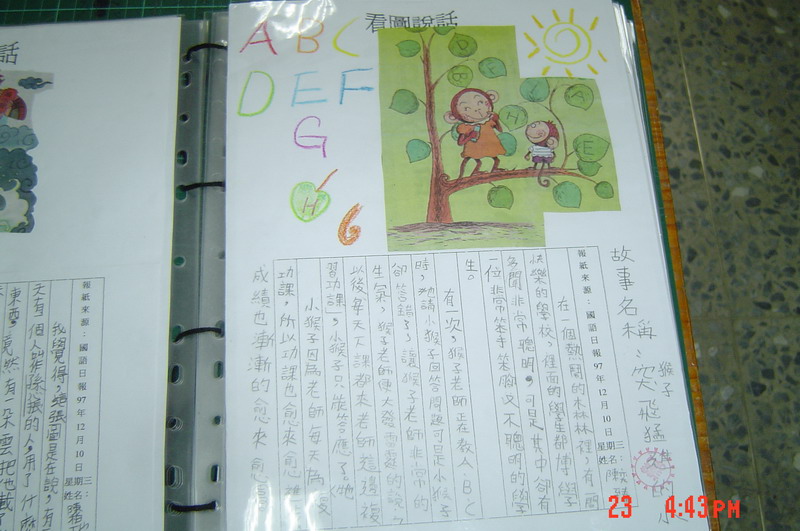 看圖說話
A B C
D E F
G
H
6
D
B
H
A
E
故事名稱：突飛猛進的小
猴子
報紙來源：國語日報97年12月10日星期三
姓名：
在一個熱鬧的森林裡，有間
快樂的學校，裡面的學生都博學
多聞非常聰明，可是其中卻有
一位非常笨手笨腳又不聰明的學
生。
有一次，猴子老師正在教ABC
時，邀請小猴子回答問題可是小猴子
卻答錯了，讓猴子老師非常的
生氣，猴子老師便大發雷霆的說：
以後每天下課都來老師這邊複
習功課」，小猴子只能答應了他
小猴子因為老師每天為 複
功課，所以功課也愈來愈進
成績也漸漸的愈來愈
話
報紙來源：國語日報97年12月10日星期三
姓名：
我覺得這張圖是在說，有
天有個人 的人，用了什麼
東西，竟然有朵雲把他載
23 4:43PM